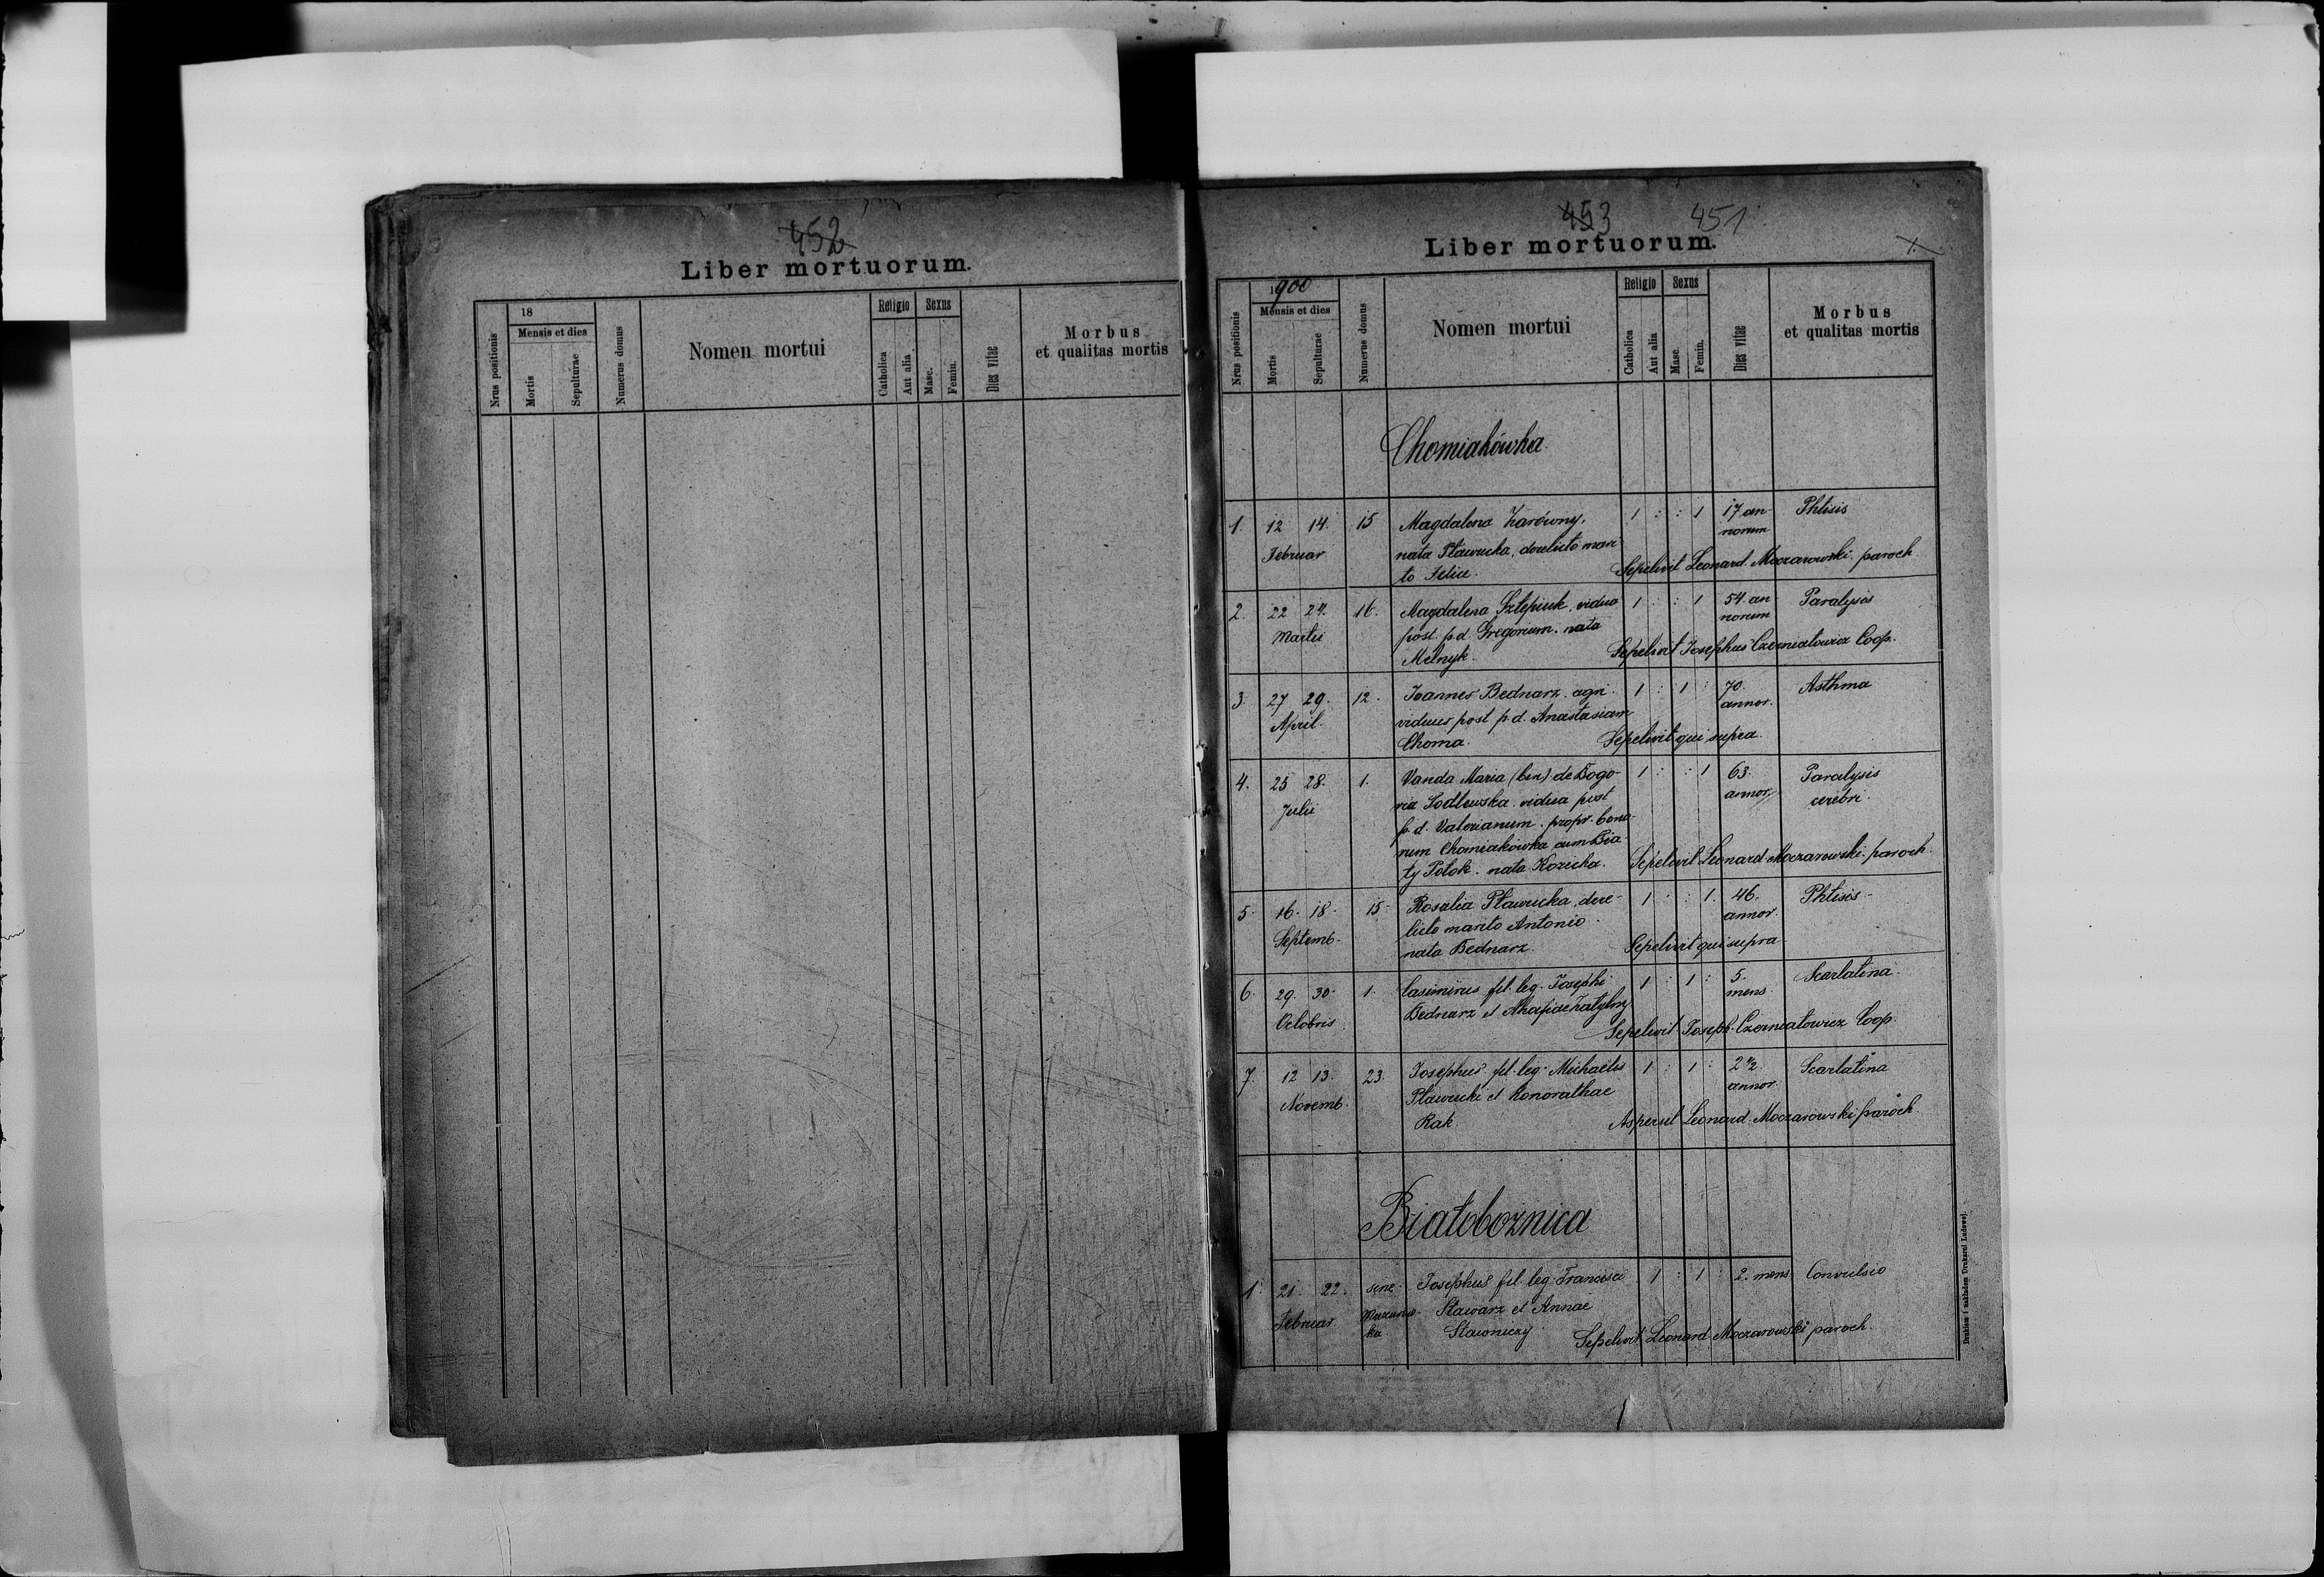 452
Liber mortuorum.
Nrus positionis
18
Mensis et dies
Mortis
Sepulturae
Numerus domus
Nomen mortui
Religio
Catholica
Aut alia
Sexus
Masc.
Femin.
Dies vitae
Morbus
et qualitas mortis
453 451
Liber mortuorum.
1.
Nrus positionis
1900
Mensis et dies
Mortis
Sepulturae
Numerus domus
Nomen mortui
Religio
Catholica
Aut alia
Sexus
Masc.
Femin.
Dies vitae
Morbus
et qualitas mortis
Chomiakówka.
1. 12 14. 15 Magdalena 1 : : 1 17 an- Phtisis
Februar nata Pławucka, derelicto mari- norum
to Felice. Sepelivit Leonard Moczarowski paroch
2. 22 24. 16. Magdalena vidua 1 : : 1 54. an- Paralysis
Martii post p. d. Gregorium. nata norum
Melnyk. Sepelivit Josephus Coop.
3. 27 29. 12. Joannes Bednarz. agri. 1 : 1 : 70. Asthma
April. viduus post p. d. Anastasiam annor.
Choma. Sepelivit qui supra.
4. 25 28. 1. Vanda Maria (bin) de Bogo- 1 : : 1 63. Paralysis
Julii ria vidua post annor. cerebri.
p. d. Valerianum. propr. bono-
rum Chomiakówka cum Bia-
ły Potok. nata Kozicka. Sepelivit Leonard Moczarowski. paroch.
5. 16. 18. 15. Rosalia Pławucka, dere- 1 : : 1. 46. Phtisis.
Septemb. licto marito Antonio annor.
nata Bednarz. Sepelivit qui supra
6. 29. 30. 1. Casimirus fil. leg. Josephi 1 : 1 : 5. Scarlatina.
Octobris Bednarz et mens
Sepelivit Joseph. Coop.
7. 12 13. 23. Josephus fil. leg. Michaëlis 1 : 1 : 2 1/2 Scarlatina
Novemb. Pławucki et Honorathae annor.
Rak. Aspersit Leonard Moczarowski paroch.
Białoboznica
1. 21. 22. Josephus fil. leg. Francisci 1 : 1 : 2. mens Convulsio
Februar. Stawarz et Annae
Sepelivit Leonard Moczarowski paroch.
Drukiem i nakładem Drukarni Ludowej.